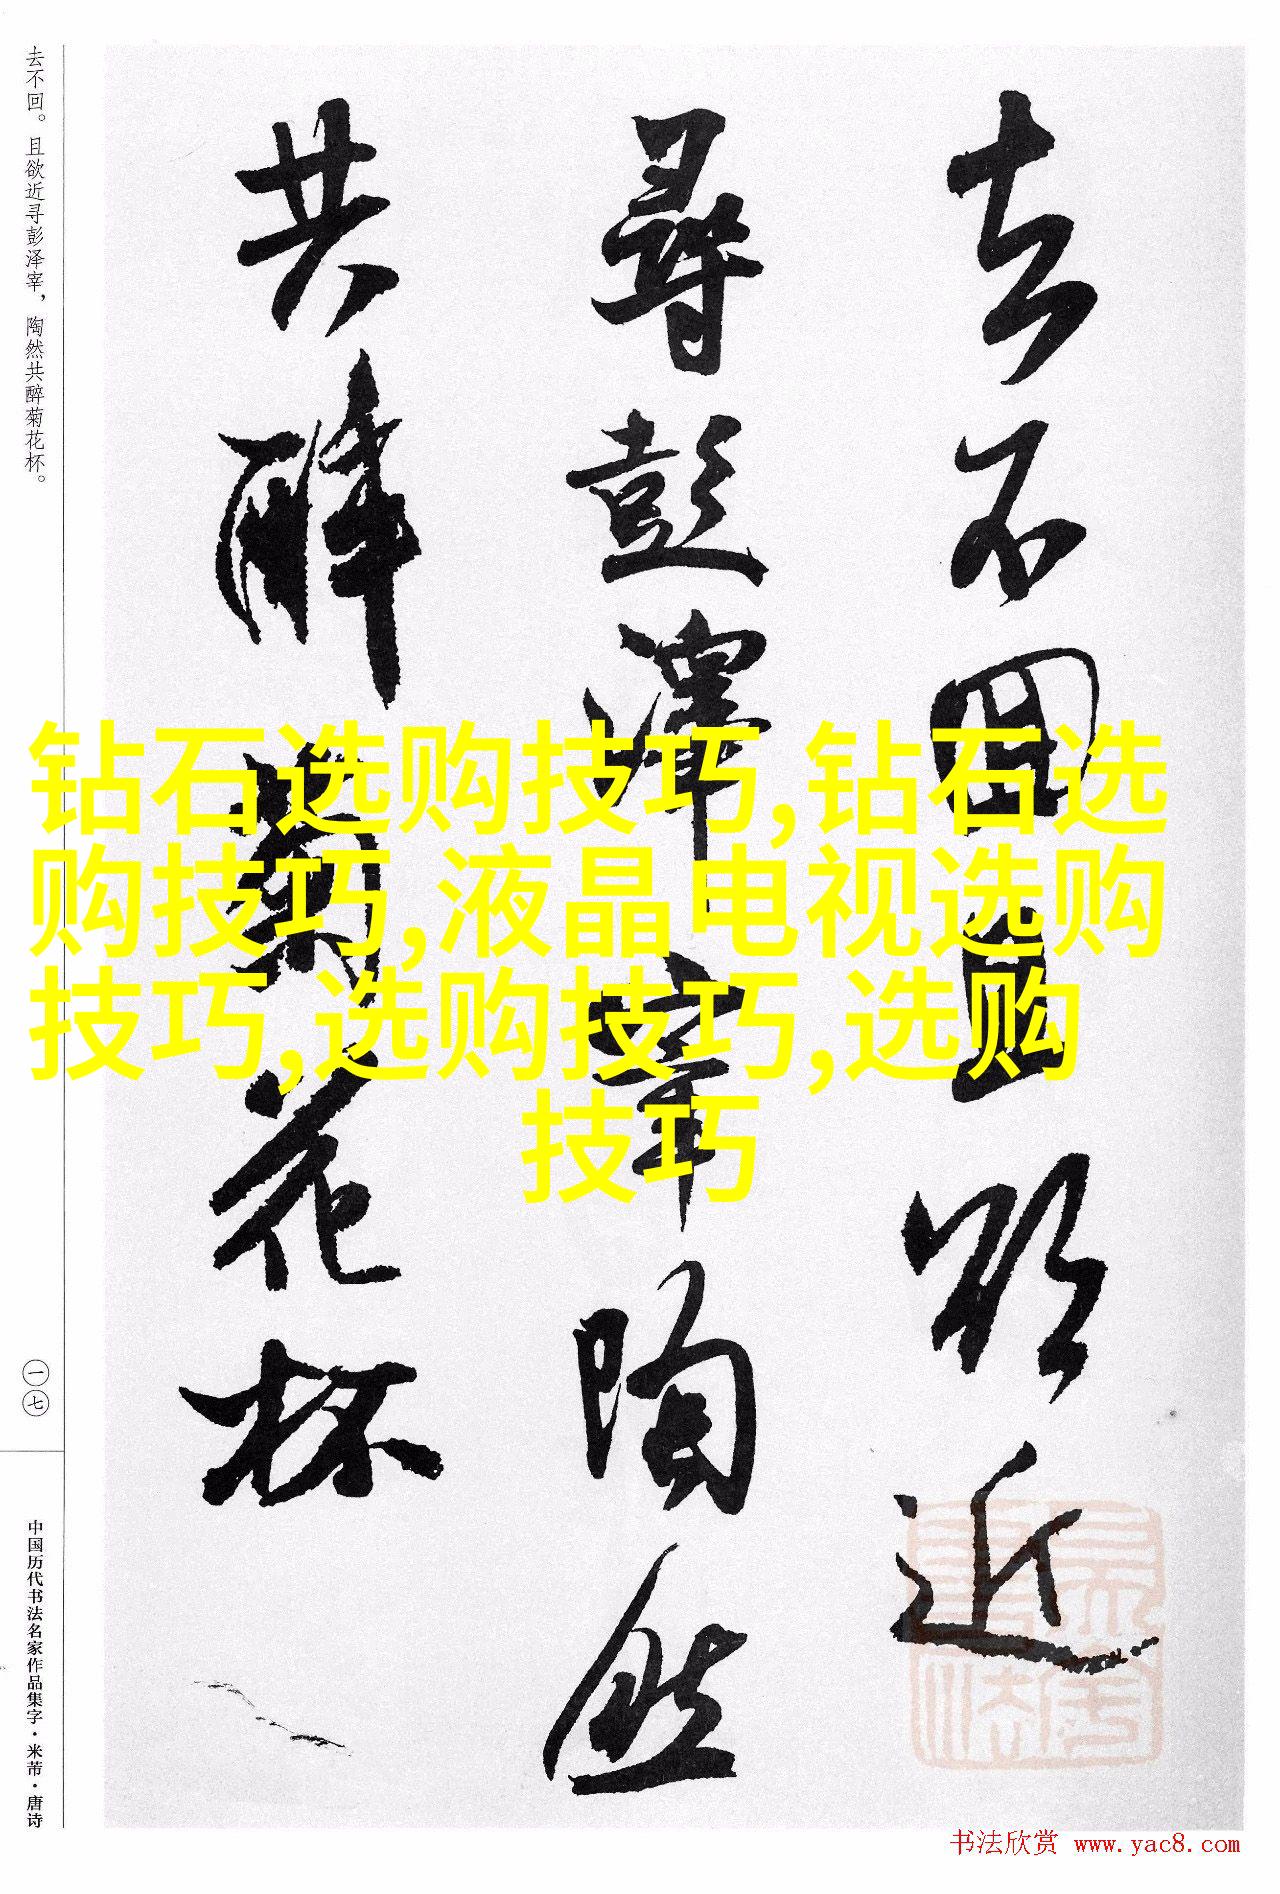 去不回且欲近
尋彭澤宰陶然
共醉菊花杯
去不回。且欲近寻彭泽宰，陶然共醉菊花杯。
一七
中国历代书法名家作品集字·米芾·唐诗
钻石选购技巧,钻石选
购技巧,液晶电视选购
技巧,选购技巧,选购
技巧
书法欣赏 www.yac8.com